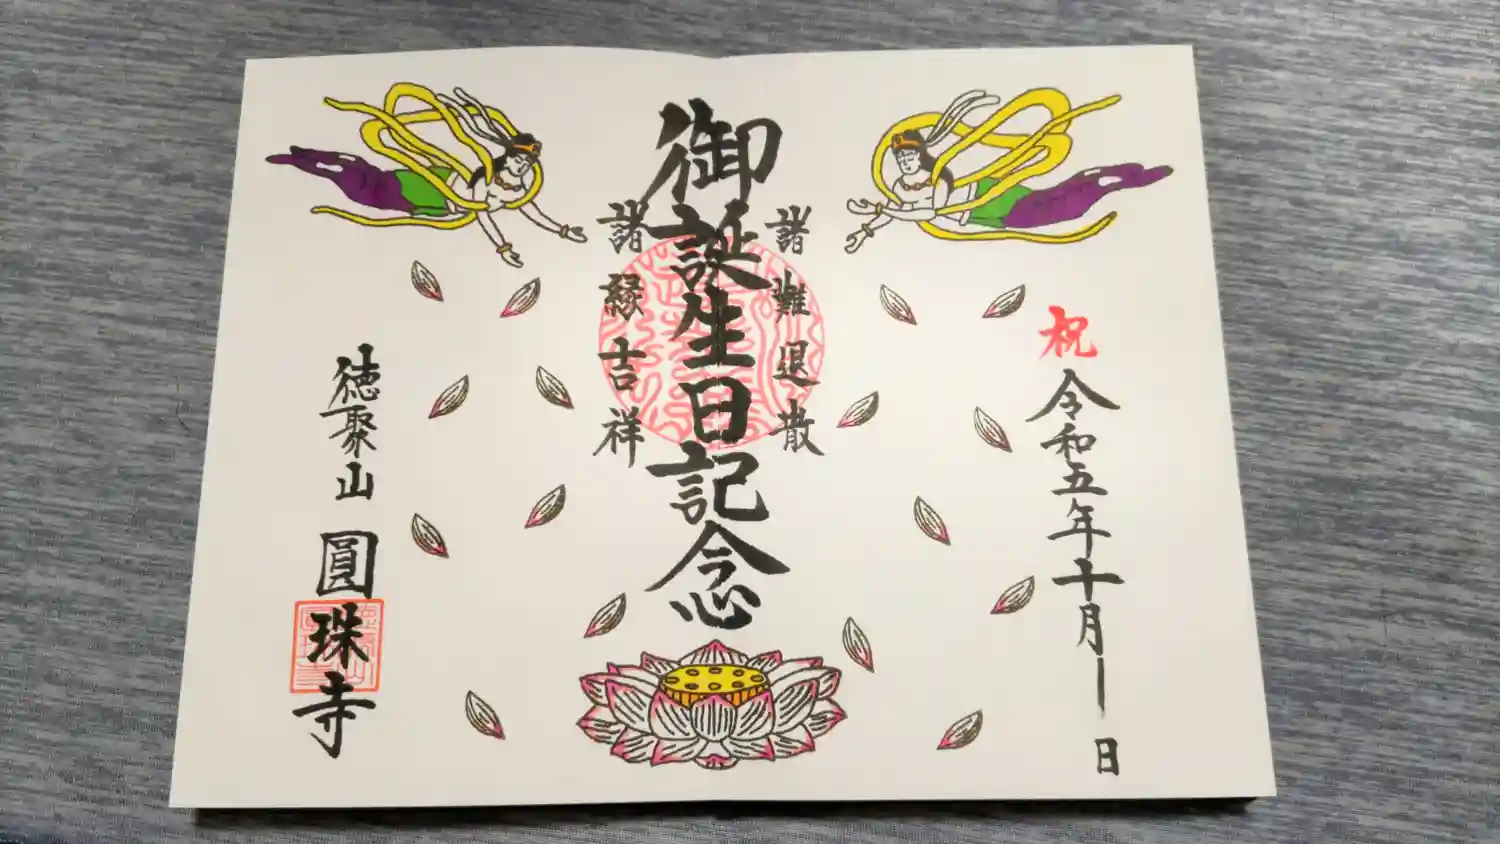 祝 令和五年十月 日
諸難退散
御誕生日記念
諸縁吉祥
徳聚山 圓珠寺